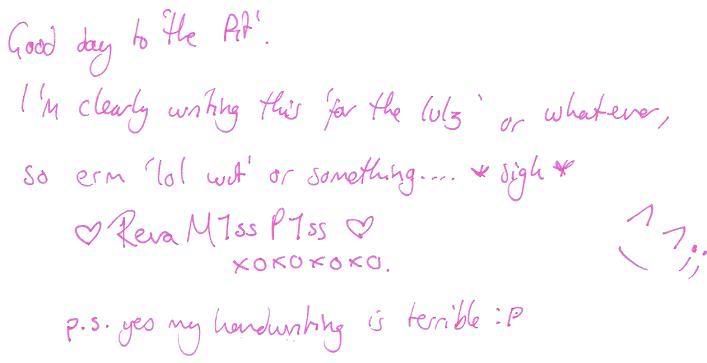 Good day to 'the Pit'.
I'm clearly writing this 'for the lulz' or whatever,
so erm 'lol wut' or something.... *sigh*
♡ Reva M1ss P1ss ♡
xoxoxoxo.
^ ^;;
p.s. yes my handwriting is terrible :P